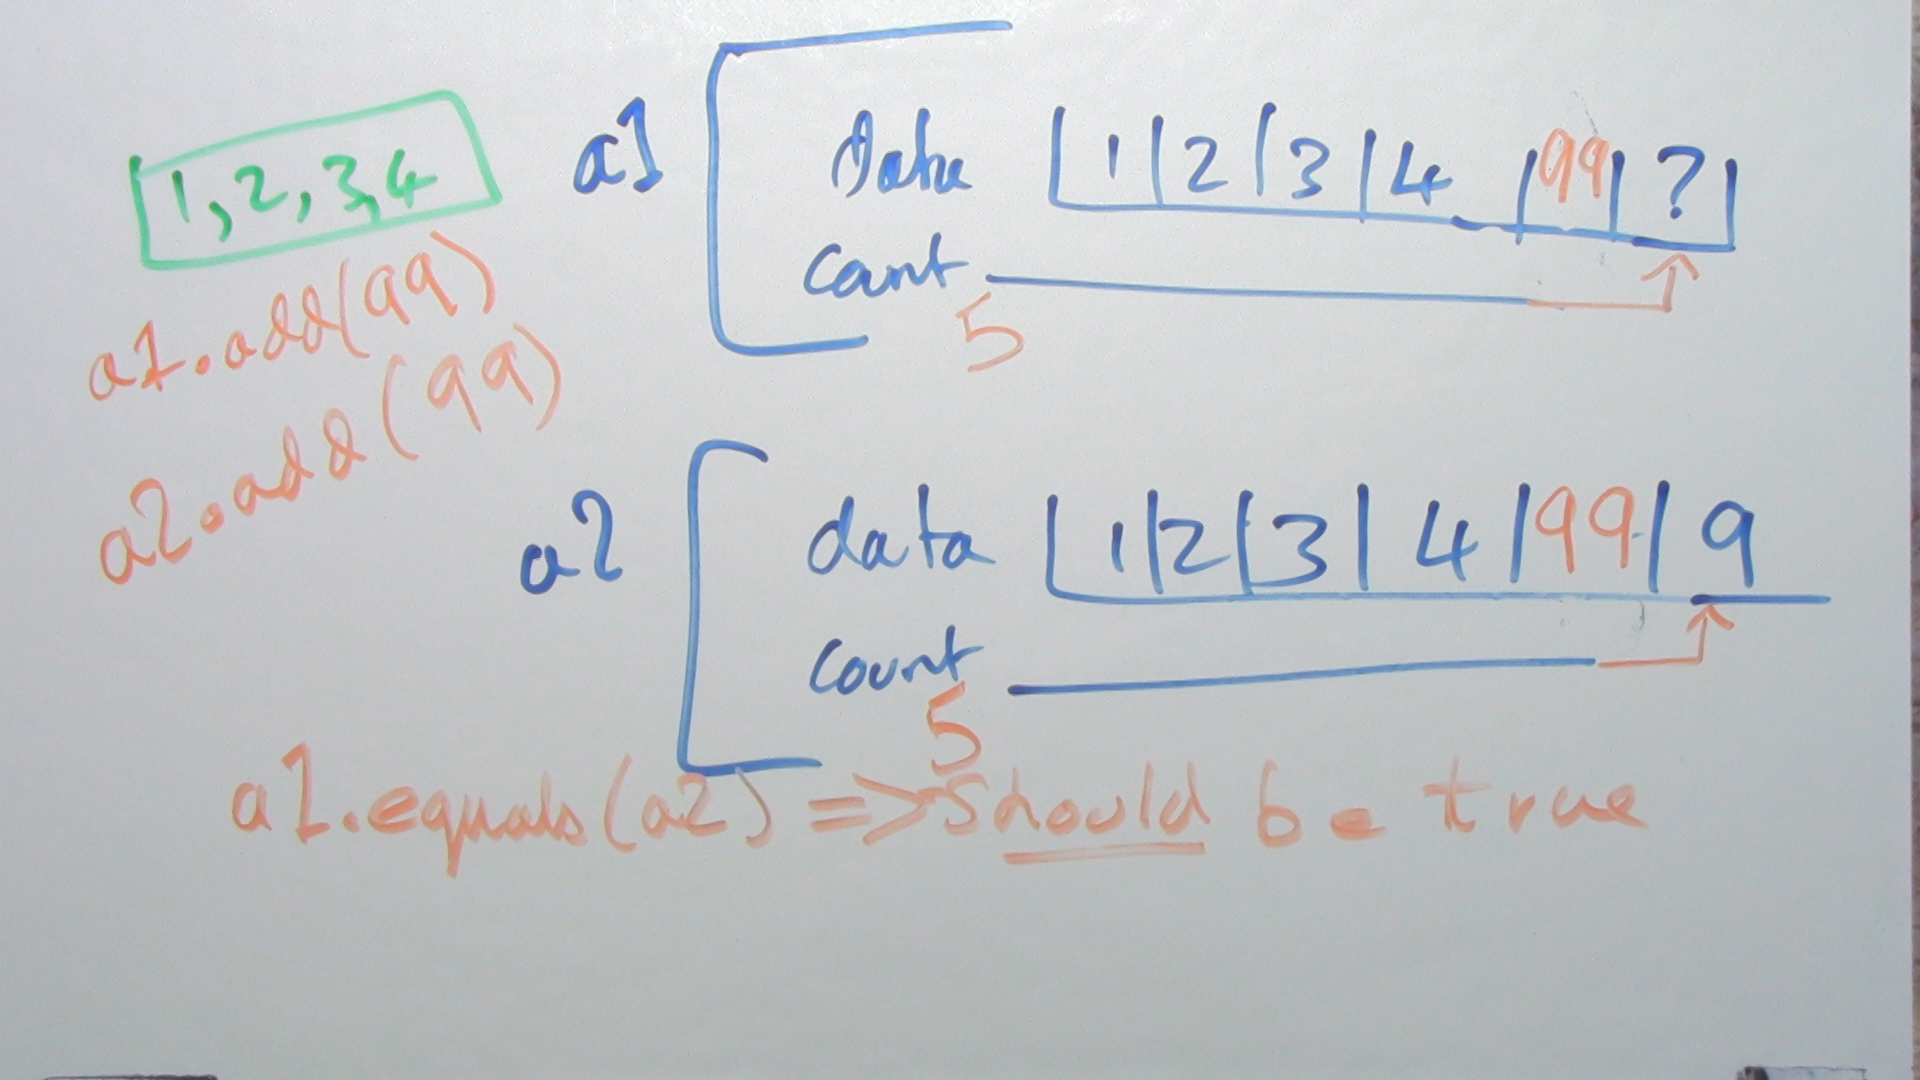 1,2,3,4
a1.add(99)
a2.add(99)
a1
Data 1 2 3 4 99 ?
Count
5
a2
data 1 2 3 4 99 9
Count
5
a1.equals(a2) => should be true